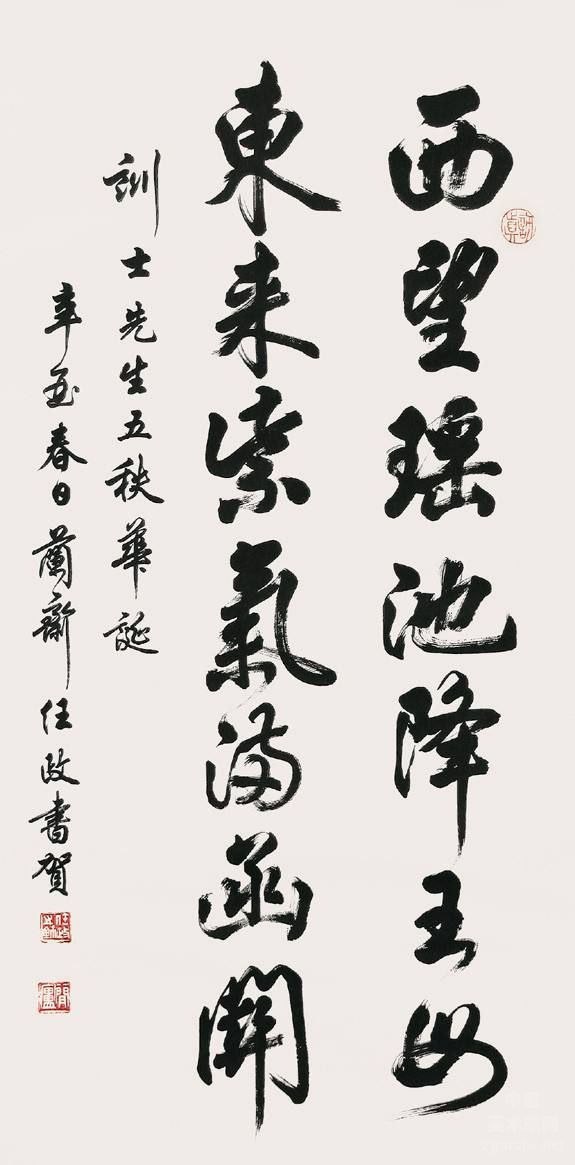 西望瑶池降王母
東来紫氣满函關
訓士先生五秩華誕
辛酉春日蘭齋任政書賀